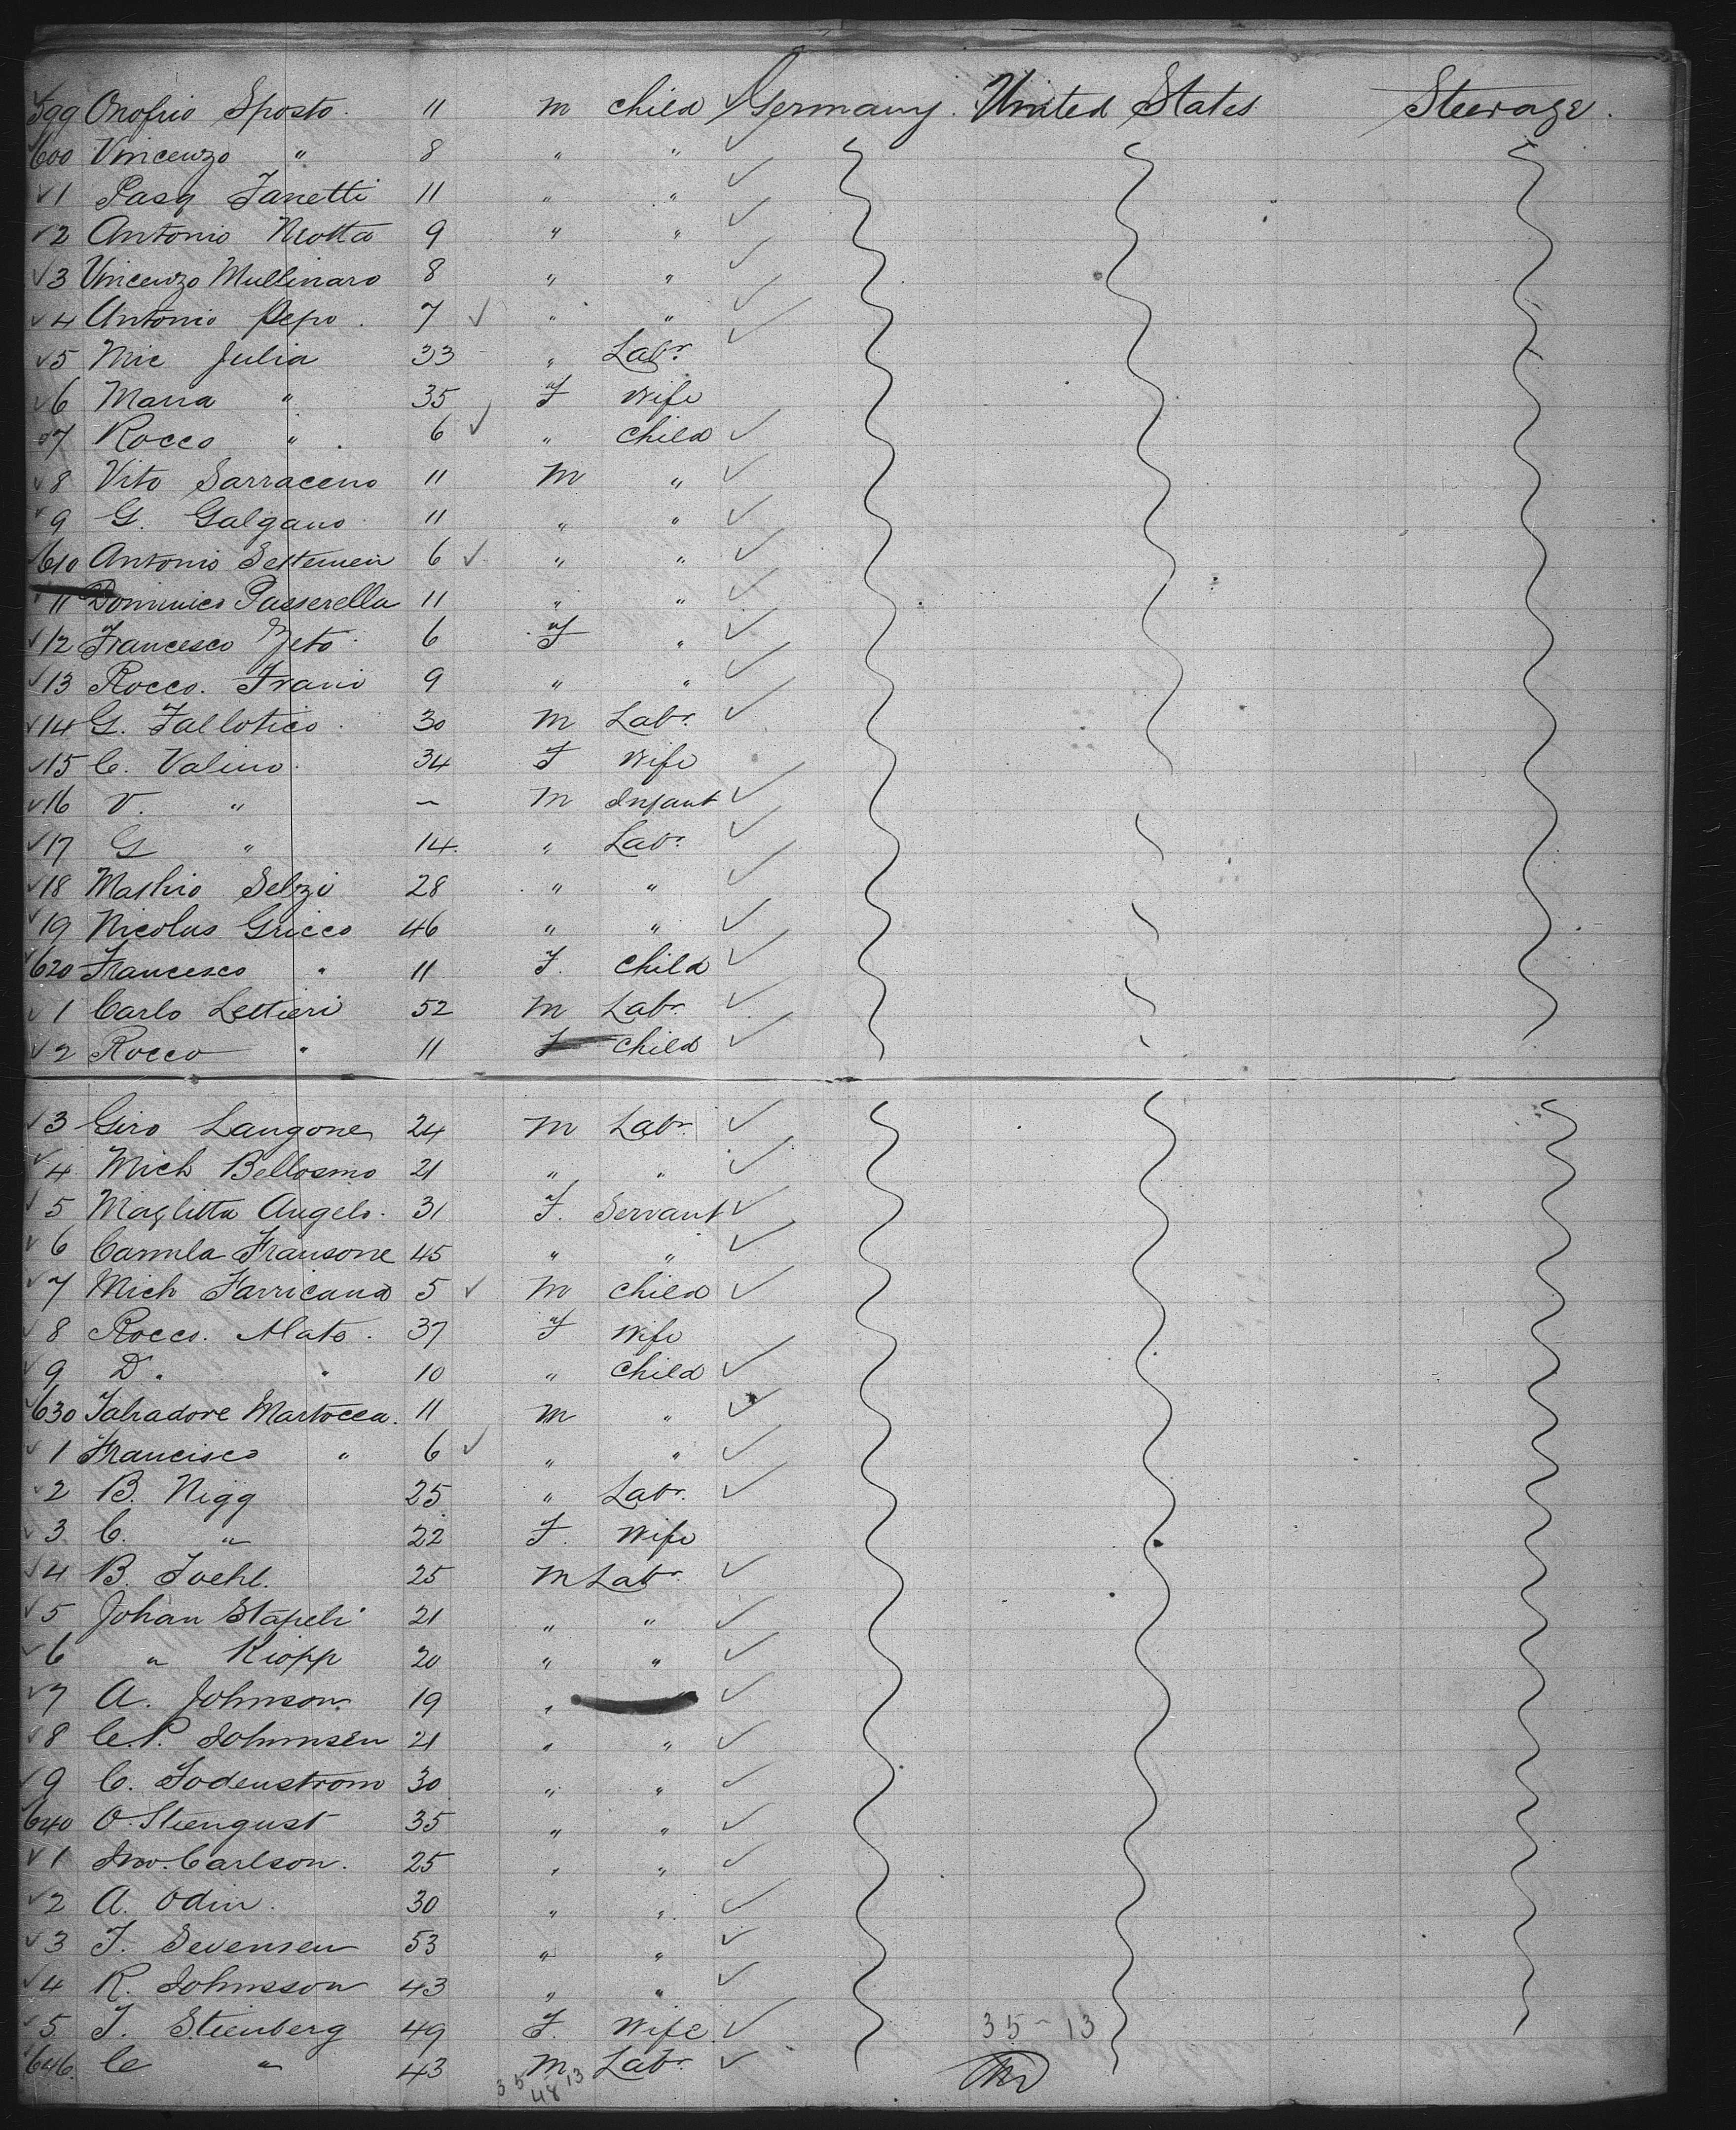 599 Onofrio Sposto. 11 m child Germany. United States Steerage.
600 Vincenzo " 8 " "
1 Pasq Zanetti 11 " "
2 Antonio Motta 9 " "
3 Vincenzo Mullinaro 8 " "
4 Antonio Pepo. 7 " "
5 Mic Julia 33 " Labr.
6 Maria " 35 F Wife
7 Rocco " 6 " child
8 Vito Sarraceno 11 m "
9 G. Galgano 11 " "
610 Antonio 6 " "
11 Dominico Passerella 11 " "
12 Francesco Zeto 6 F "
13 Rocco. 9 " "
14 G. 30 m Labr.
15 C. Valino. 34 F Wife
16 V. " – m Infant
17 G " 14. " Labr.
18 28 " "
19 Nicolus Gricco 46 " "
620 Francesco " 11 F. child
1 Carlo Lettieri 52 m Labr
2 Rocco " 11 F child
3 Giro Langone 24 m Labr.
4 Mich Bellosmo 21 " "
5 Maglitta Angelo. 31 F. Servant
6 Camila Fransone 45 " "
7 Mich Farricana 5 m child
8 Rocco. Alato. 37 F Wife
9 D. " 10 " child
630 Martocca. 11 m "
1 Francisco " 6 " "
2 B. Nigg 25 " Labr.
3 C. " 22 F. Wife
4 B. 25 m Labr.
5 Johan Stapeli 21 " "
6 " Kiopp 20 " "
7 A. Johnson 19 "
8 C.P. Johnnsen 21 " "
9 C. Sodenstrom 30 " "
640 O. Stengust 35 " "
1 Jno. Carlson. 25 " "
2 A. Odin. 30 " "
3 J. Sevensen 53 " "
4 R. Johnsson 43 " "
5. J. Stienberg 49 F. Wife. 35 – 13
646. C " 43 m Labr
35 13
48